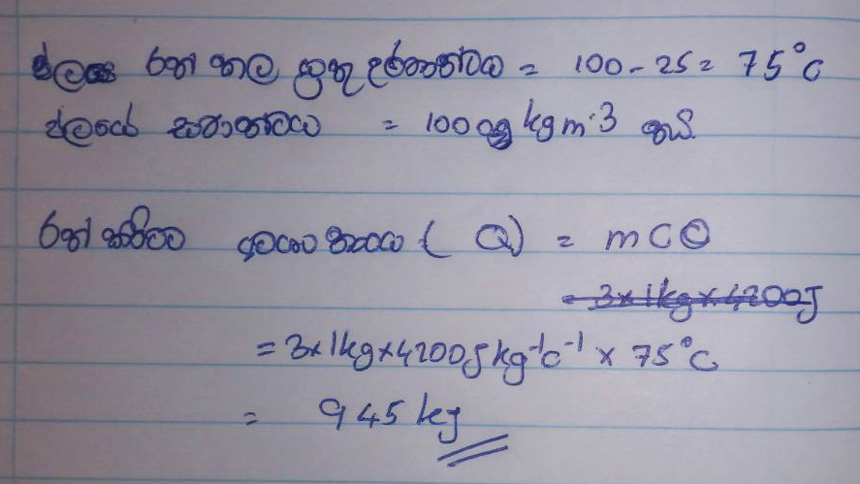 ජලය රත් කල යුතු උෂ්ණත්වය = 100 - 25 = 75°C
ජලයේ ඝනත්වය = 1000 kg m-3 නයි.
රත් කිරීමට අවශ්‍ය තාපය ( Q ) = mcΘ
= 3×1kg×4200J
= 3×1kg×4200J kg⁻¹c⁻¹ × 75°C
= 945 kJ